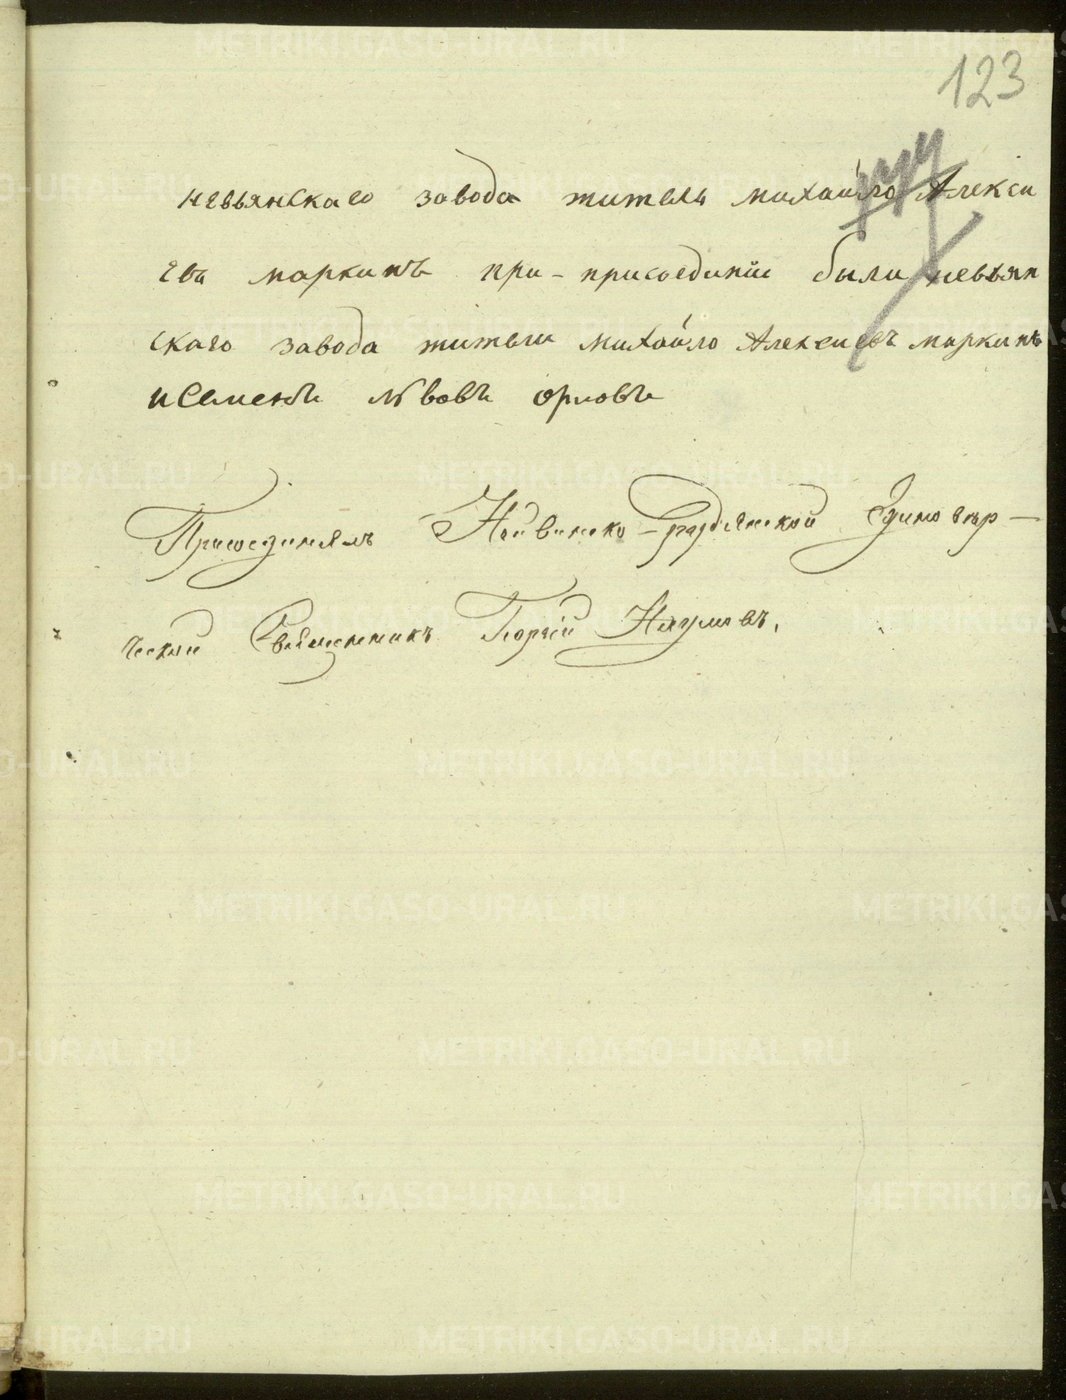 123
невьянскаго завода житель михаило Алексѣ
евъ маркинъ при-присоединіи были невьян
скаго завода жители михаило Алексѣевъ маркинъ
и Семенъ львовъ орловъ
Присоединялъ Нейвинско-Рудянской Единовѣр-
ческій Священникъ Георгій Наумовъ.
METRIKI.GASO-URAL.RU